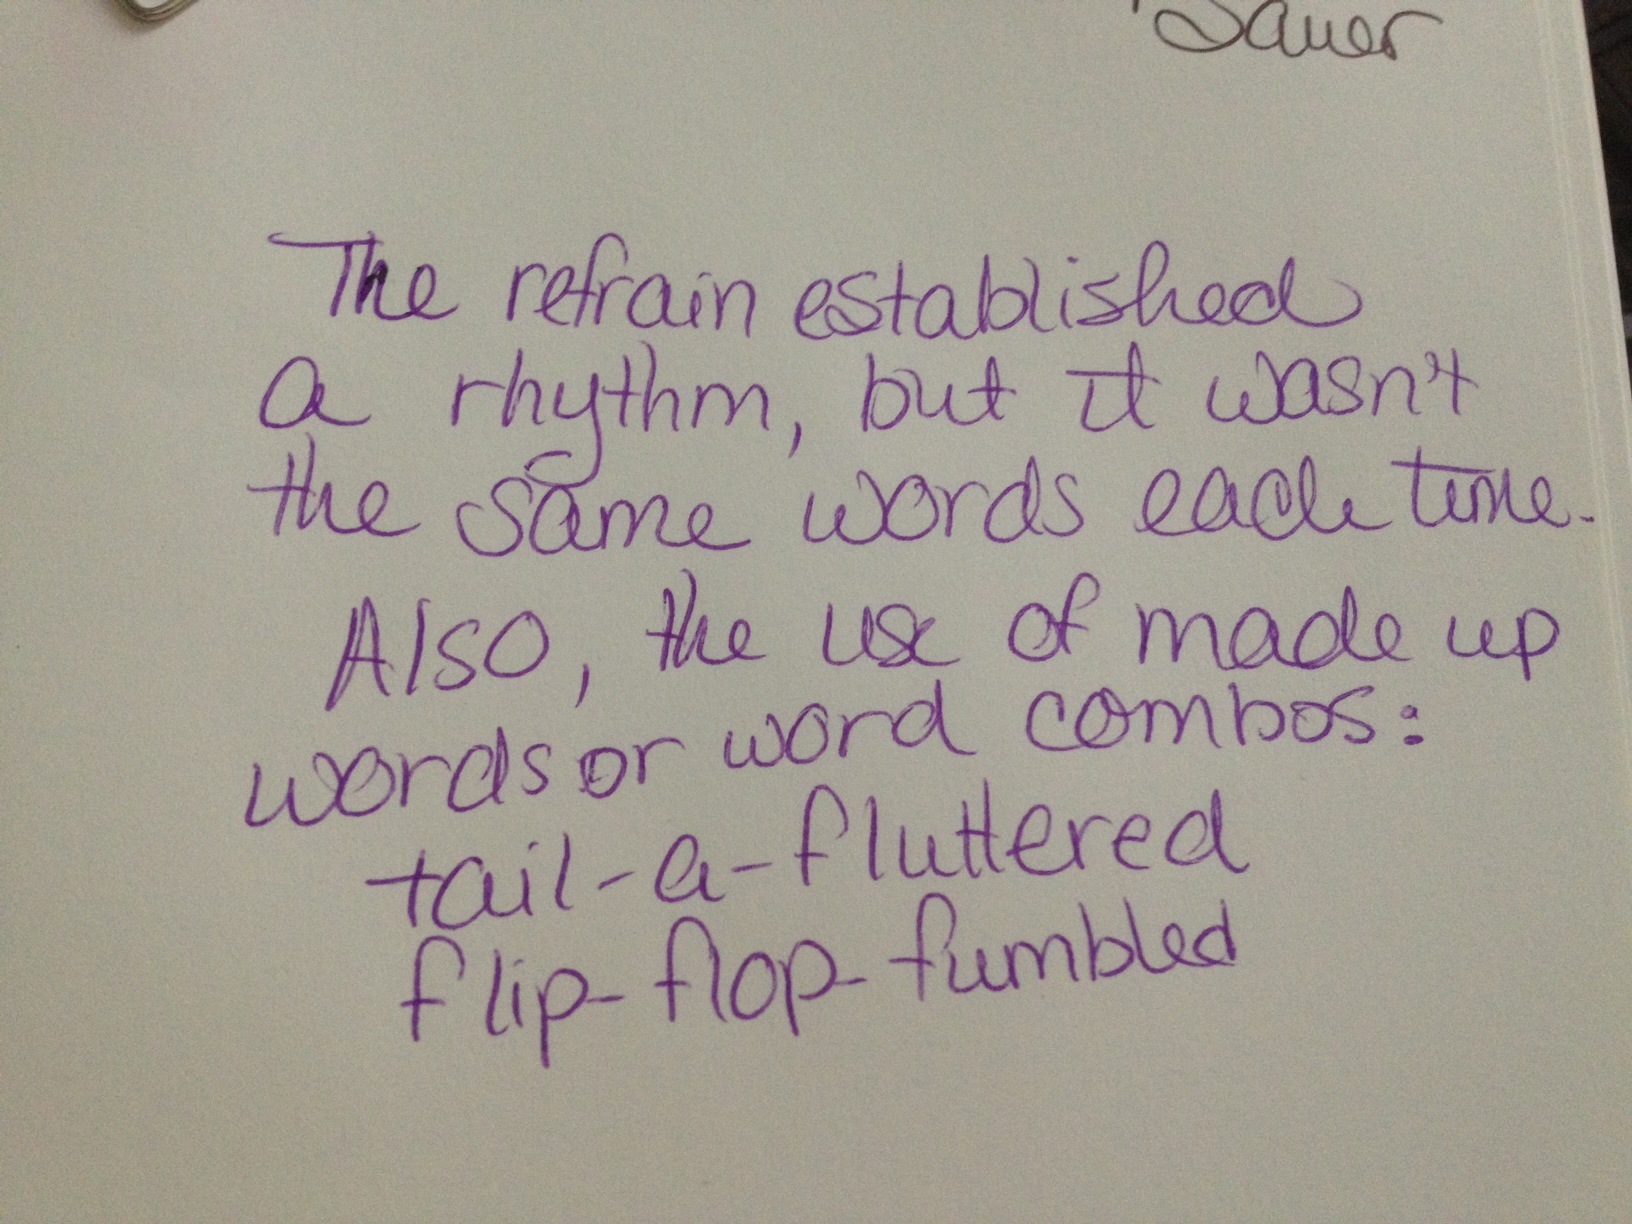 Sauer
The refrain established
a rhythm, but it wasn't
the same words each time.
Also, the use of made up
words or word combos:
tail-a-fluttered
flip-flop-fumbled